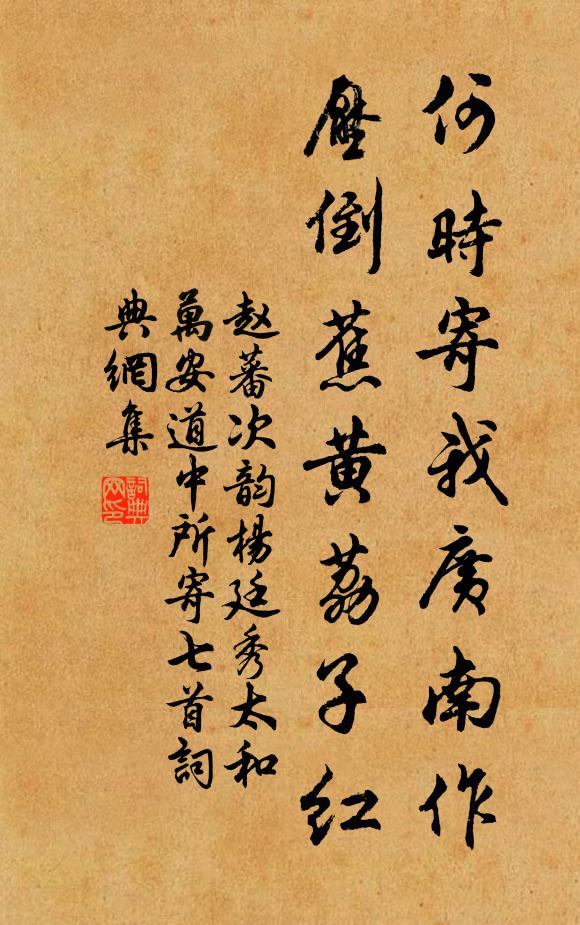 何時寄我廣南作
壓倒蕉黄荔子红
赵蕃次韵楊廷秀太和
萬安道中所寄七首詞
典網集
詞典
网印